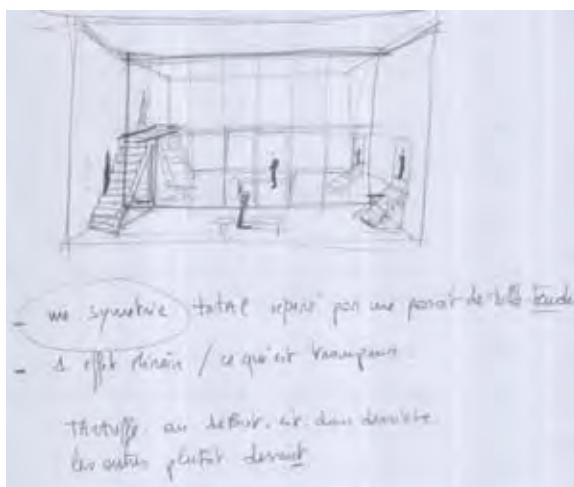 - une symétrie total séparé par une paroi de tulle tendu
- 1 effet miroir / ce qui est trompeur.
Tartuffe au début, est dans derrière
les autres plutôt devant